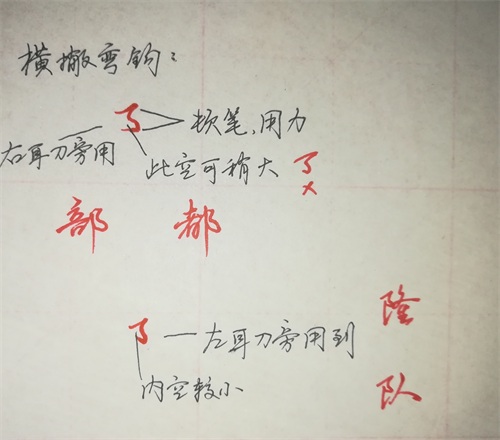 横撇弯钩:
了 软笔,用力
右耳刀旁用 此空可稍大 了
×
部 都
隆
了 — 左耳刀旁用到
内空较小 队